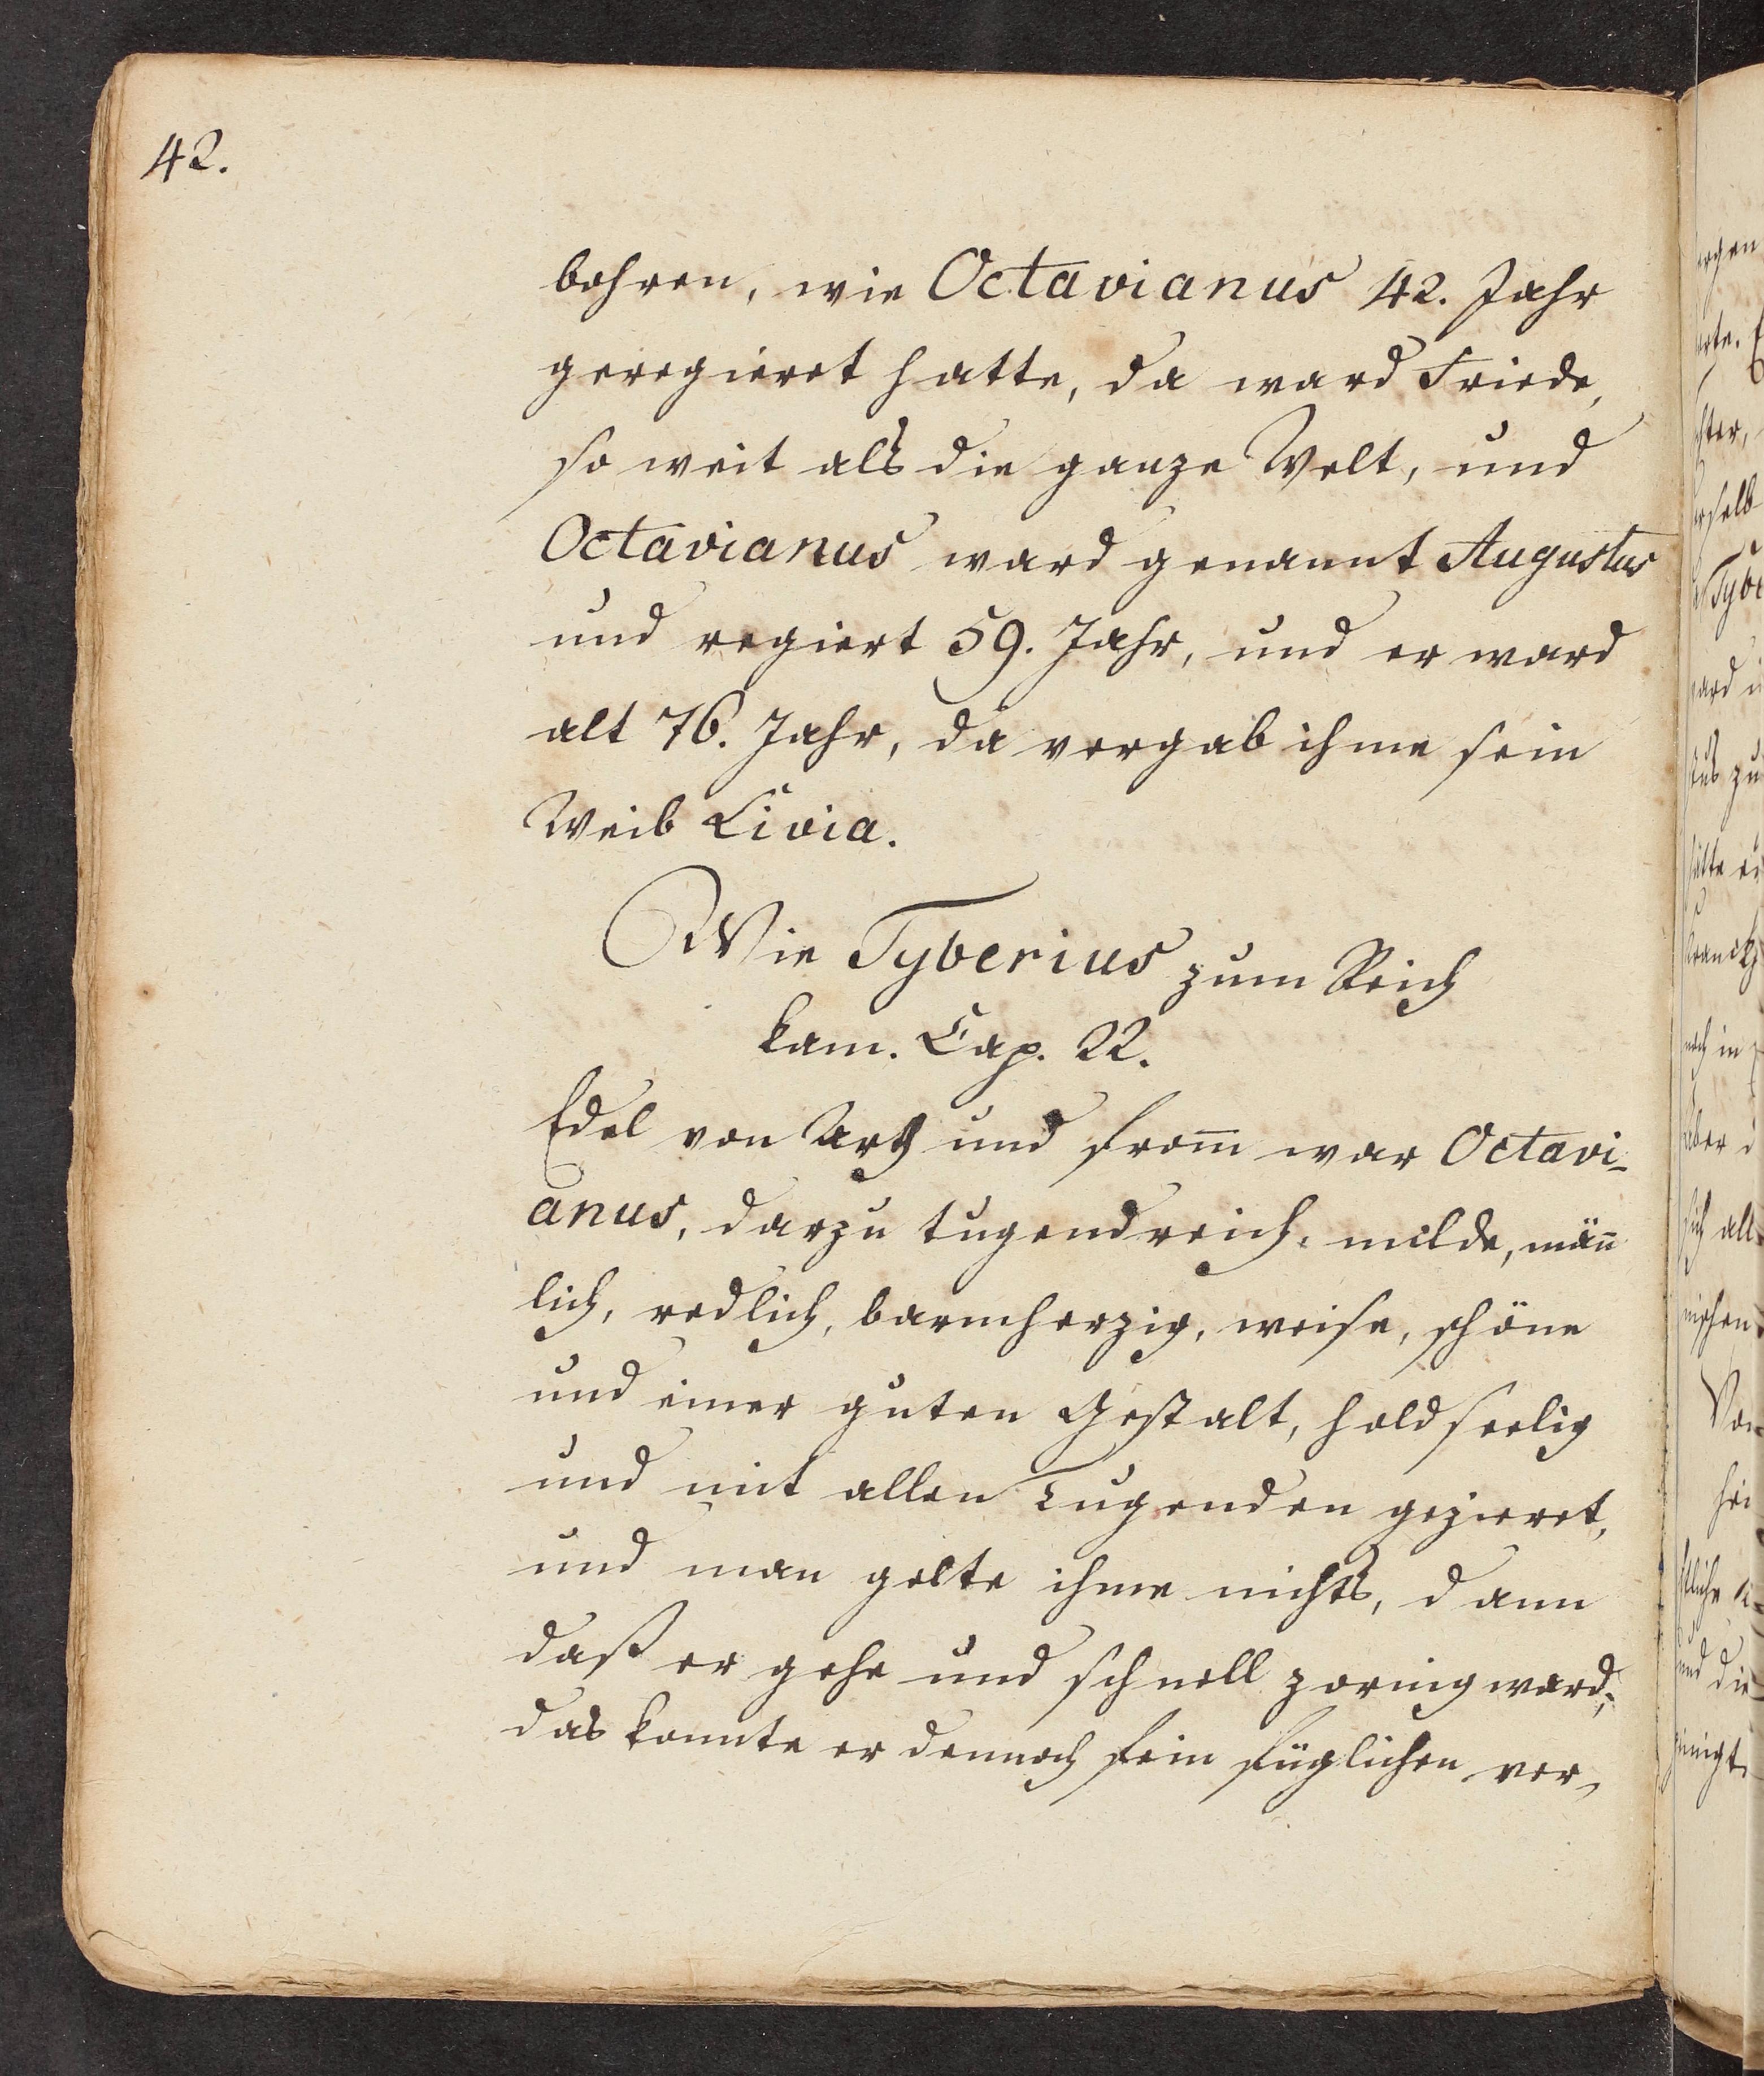 42.
bohren, wie Octavianus 42. Jahr
geregieret hatte, da ward Friede,
so weit als die ganze Welt, und
Octavianus ward genannt Augustus
und regiert 59. Jahr, und er ward
alt 76. Jahr, da vergab ihme sein
Weib Livia.
Wie Tyberius zum Reich
kam. Cap. 22.
Edel von Arth und from̅ war Octavi-
anus, darzu tugendreich, milde, män̅
lich, redlich, barmherzig, weise, schöne
und einer guten Gestalt, holdseelig
und mit allen Tugenden gezieret,
und man golte ihme nichts, dann
daß er gehe und schnell zornig ward,
das konnte er dennoch fein füglichen ver-